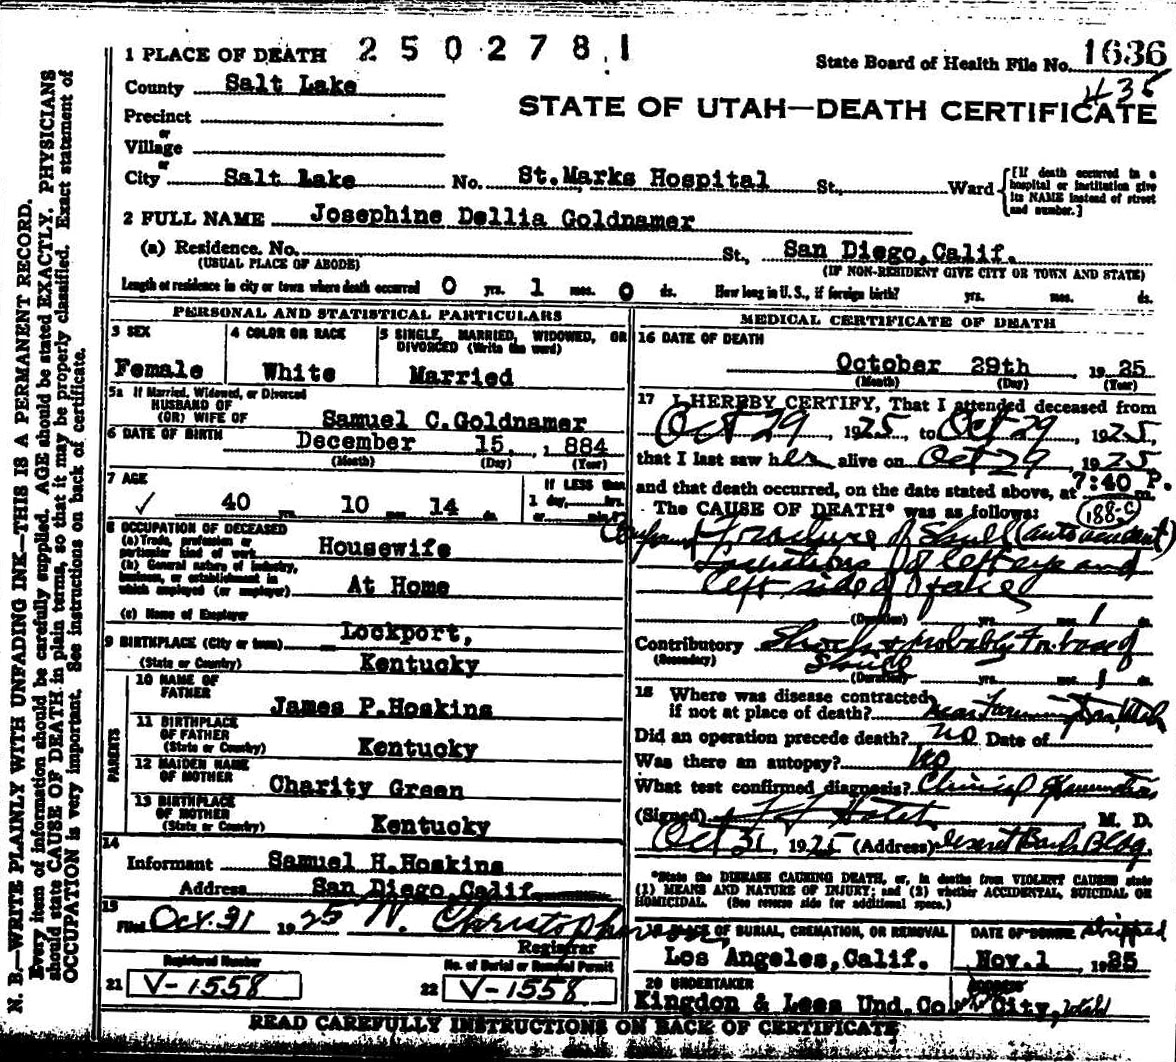 1 PLACE OF DEATH 2502781
State Board of Health File No. 1636
435
County Salt Lake
STATE OF UTAH—DEATH CERTIFICATE
Precinct
or
Village
or
City Salt Lake No. St.Marks Hospital St., Ward
[If death occurred in a hospital or institution give its NAME instead of street and number.]
2 FULL NAME Josephine Dellia Goldnamer
(a) Residence. No. St., San Diego,Calif.
(USUAL PLACE OF ABODE) (IF NON-RESIDENT GIVE CITY OR TOWN AND STATE)
Length of residence in city or town where death occurred 0 yrs. 1 mos. 0 ds. How long in U. S., if foreign birth? yrs. mos. ds.
PERSONAL AND STATISTICAL PARTICULARS
3 SEX
Female
4 COLOR OR RACE
White
5 SINGLE, MARRIED, WIDOWED, OR
DIVORCED (Write the word)
Married
5a If Married, Widowed, or Divorced
HUSBAND OF
(OR) WIFE OF Samuel C.Goldnamer
6 DATE OF BIRTH December 15, 1 884
(Month) (Day) (Year)
7 AGE
✓ 40 yrs. 10 mos. 14 ds.
If LESS than
1 day, hrs.
or min.?
8 OCCUPATION OF DECEASED
(a) Trade, profession or
particular kind of work Housewife
(b) General nature of industry,
business, or establishment in
which employed (or employer) At Home
(c) Name of Employer
9 BIRTHPLACE (City or town) Lockport,
(State or Country) Kentucky
PARENTS
10 NAME OF
FATHER James P.Hoskins
11 BIRTHPLACE
OF FATHER
(State or Country) Kentucky
12 MAIDEN NAME
OF MOTHER Charity Green
13 BIRTHPLACE
OF MOTHER
(State or Country) Kentucky
14
Informant Samuel H.Hoskins
Address San Diego,Calif
15
Filed Oct. 31 1925 N. Christopherson
Registrar
Registered Number
21 V-1558
No. of Burial or Removal Permit
22 V-1558
MEDICAL CERTIFICATE OF DEATH
16 DATE OF DEATH
October 29th 1925
(Month) (Day) (Year)
17 I HEREBY CERTIFY, That I attended deceased from
Oct 29, 1925, to Oct 29, 1925,
that I last saw her alive on Oct 29, 1925
and that death occurred, on the date stated above, at 7:40 P. m.
The CAUSE OF DEATH* was as follows: 188-c
Fracture of Skull (auto accident)
of left eye and
left side of face
(Duration) yrs. mos. 1
Contributory Shock & probably Fr. base of
(Secondary) Skull
(Duration) yrs. mos. 1 ds.
18 Where was disease contracted
if not at place of death? near Utah
Did an operation precede death? no Date of
Was there an autopsy? No
What test confirmed diagnosis? Clinical Examination
(Signed) M. D.
Oct 31, 1925 (Address) Deseret Bank Bldg.
*State the DISEASE CAUSING DEATH, or, in deaths from VIOLENT CAUSES state
(1) MEANS AND NATURE OF INJURY; and (2) whether ACCIDENTAL, SUICIDAL OR
HOMICIDAL. (See reverse side for additional space.)
19 PLACE OF BURIAL, CREMATION, OR REMOVAL
Los Angeles,Calif.
DATE OF shipped
Nov.1 1925
20 UNDERTAKER
Kingdon & Lees Und.Co City, Utah
READ CAREFULLY INSTRUCTIONS ON BACK OF CERTIFICATE
N. B.—WRITE PLAINLY WITH UNFADING INK—THIS IS A PERMANENT RECORD.
Every item of information should be carefully supplied. AGE should be stated EXACTLY. PHYSICIANS
should state CAUSE OF DEATH in plain terms, so that it may be properly classified. Exact statement of
OCCUPATION is very important. See instructions on back of certificate.